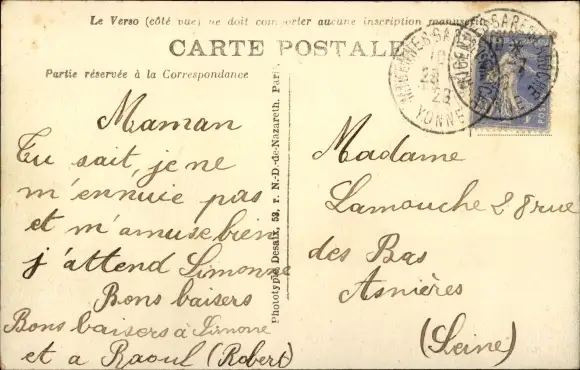 Le Verso (côté vue) ne doit comporter aucune inscription manuscrite
CARTE POSTALE
Partie réservée à la Correspondance
Maman
Tu sait, je ne
m'ennuie pas
et m'amuse bien
j'attend Simonne
Bons baisers
Bons baisers à Simone
et a Raoul (Robert)
Phototypie Desaix, 53, r. N.-D.-de-Nazareth, Par.
YONNE
Madame
Lamouche 28 rue
des Bas
Asnières
(Seine)